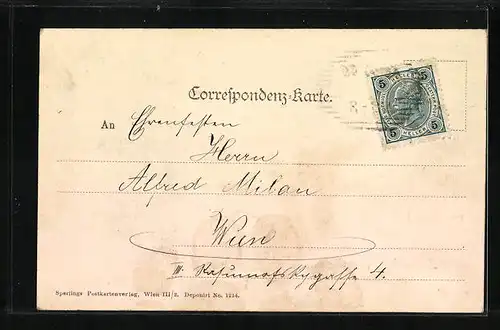 Correspondenz-Karte.
An Ehrenfesten
Herrn
Alfred Milan
Wien
III. Rasumofskygasse 4.
Sperlings Postkartenverlag, Wien III/2. Deponirt No. 1114.
5 5
5 5
HELLER